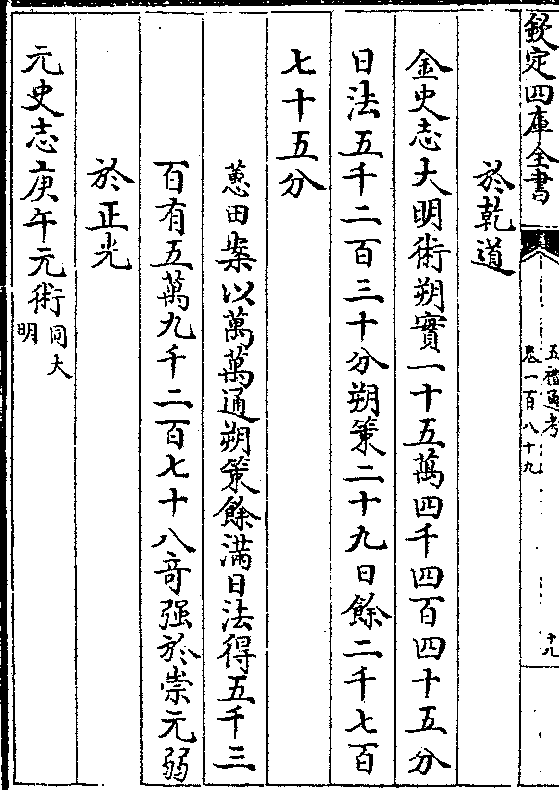 欽定四庫全書
五禮通考
卷一百八十九
十九
於乾道
金史志大明術朔實一十五萬四千四百四十五分
日法五千二百三十分朔策二十九日餘二千七百
七十五分
蕙田案以萬萬通朔策餘滿日法得五千三
百有五萬九千二百七十八竒强於崇元弱
於正光
元史志庚午元術同大
明